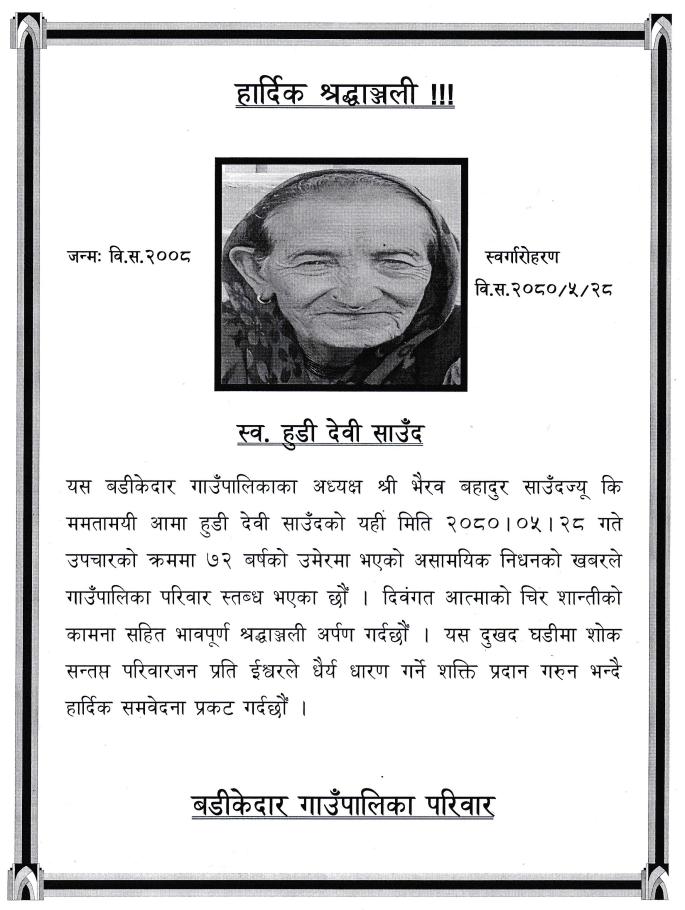 हार्दिक श्रद्धाञ्जली !!!
जन्मः वि.स.२००८
स्वर्गारोहरण
वि.स.२०८०/५/२८
स्व. हुडी देवी साउँद
यस बडीकेदार गाउँपालिकाका अध्यक्ष श्री भैरव बहादुर साउँदज्यू कि
ममतामयी आमा हुडी देवी साउँदको यहीं मिति २०८०।०५।२८ गते
उपचारको क्रममा ७२ बर्षको उमेरमा भएको असामयिक निधनको खबरले
गाउँपालिका परिवार स्तब्ध भएका छौं । दिवंगत आत्माको चिर शान्तीको
कामना सहित भावपूर्ण श्रद्धाञ्जली अर्पण गर्दछौं । यस दुखद घडीमा शोक
सन्तप्त परिवारजन प्रति ईश्वरले धैर्य धारण गर्ने शक्ति प्रदान गरुन भन्दै
हार्दिक समवेदना प्रकट गर्दछौं ।
बडीकेदार गाउँपालिका परिवार